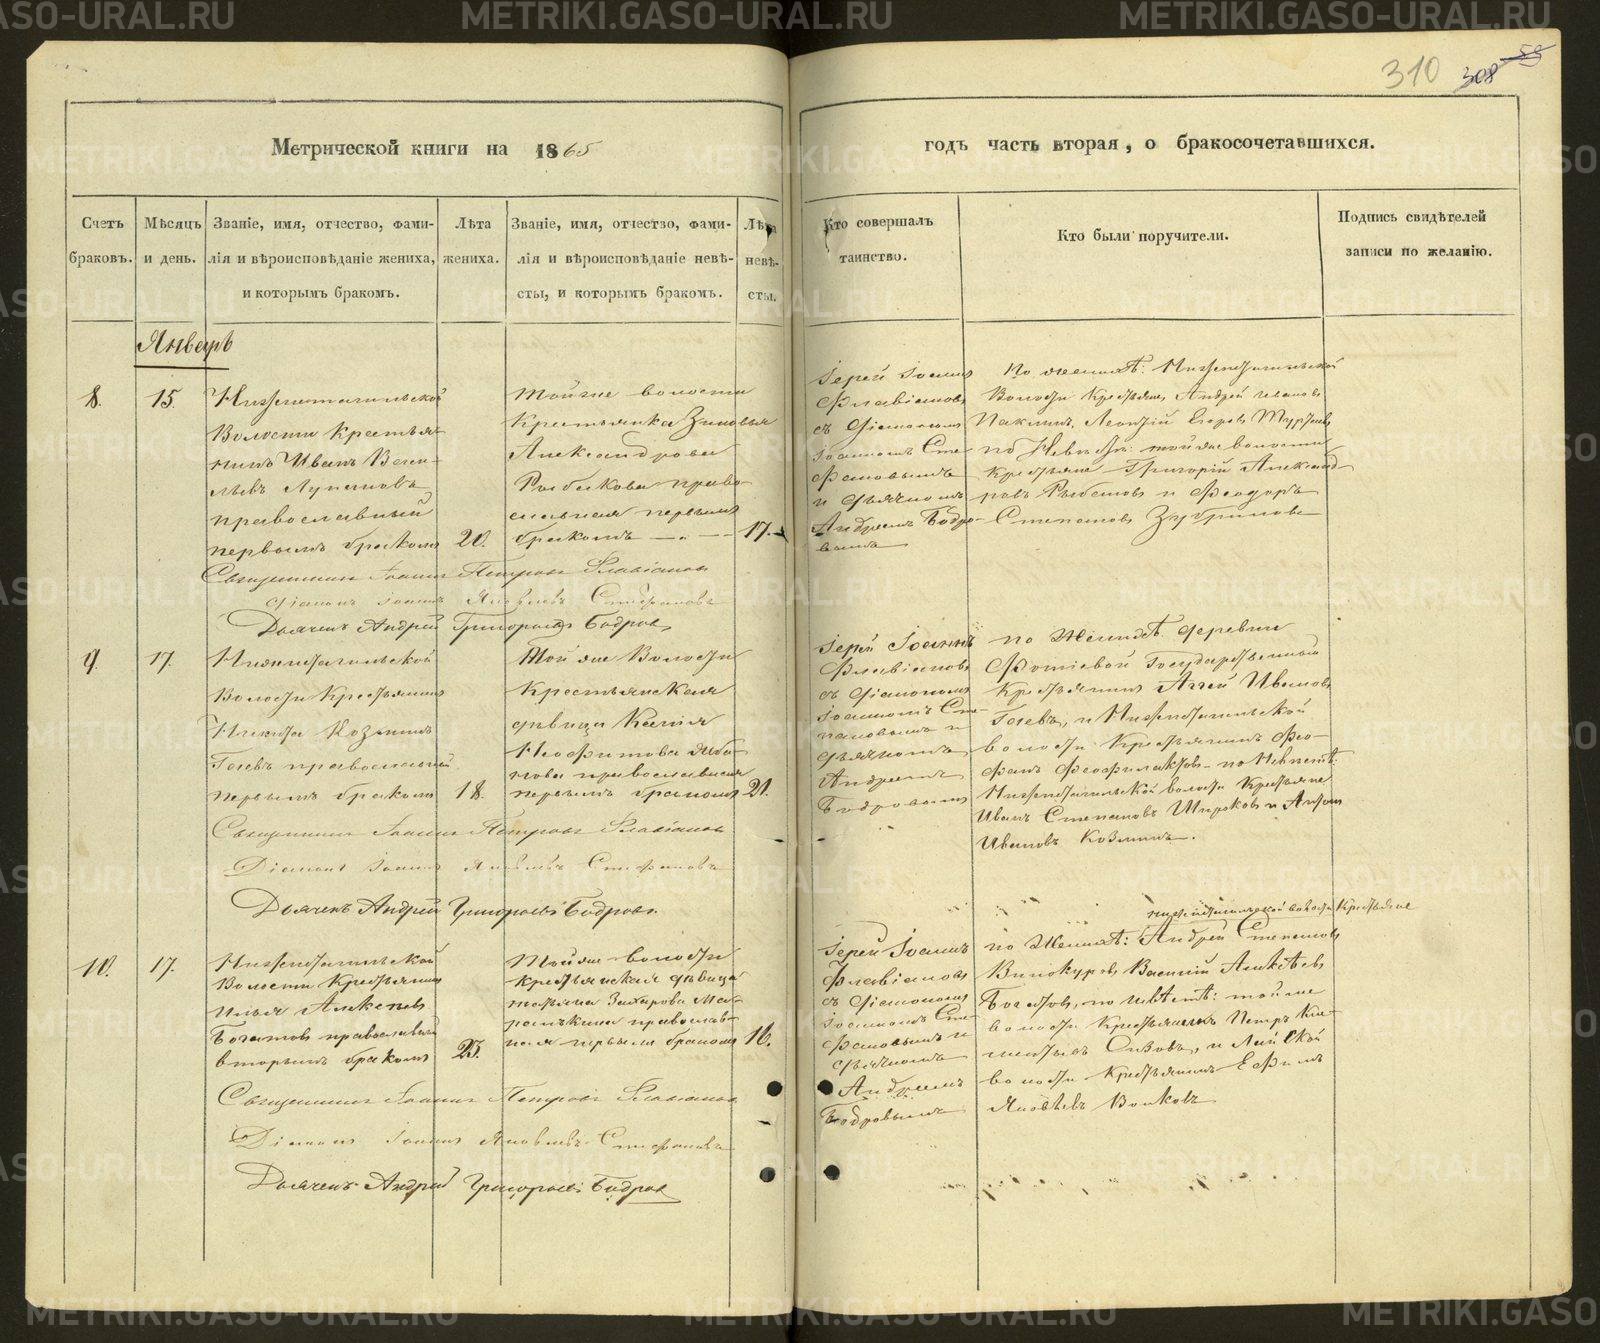 310
308
59
Метрической книги на 1865
годъ часть вторая, о бракосочетавшихся.
Счетъ браковъ.
Мѣсяцъ и день.
Званіе, имя, отчество, фами-
лія и вѣроисповѣданіе жениха,
и которымъ бракомъ.
Лѣта жениха.
Званіе, имя, отчество, фами-
лія и вѣроисповѣданіе невѣ-
сты, и которымъ бракомъ.
Лѣта невѣ-
сты.
Кто совершалъ
таинство.
Кто были поручители.
Подпись свидѣтелей
записи по желанію.
Январь
8.
15.
Нижнетагильской
Волости Крестья-
нинъ Иванъ Васи-
льевъ
православный
первымъ бракомъ
20.
Тойже волости
Крестьянка Зиновья
Александрова
Рыбакова право-
славная первымъ
бракомъ
17.
Іерей Іоаннъ
Флавіановъ
съ Діакономъ
Іоанномъ Сте-
фановымъ
и дьячкомъ
Андреемъ Бодро-
вымъ
По женихѣ: Нижнетагильской
Волости Крестьяне Андрей Ивановъ
Паклинъ, Леонтій Егоровъ
по Невѣстѣ: той же волости
Крестьяне Григорій Александ-
ровъ и Феодоръ
Степановъ
Священникъ Іоаннъ Петровъ Флавіановъ
Діаконъ Іоаннъ Яковлевъ Стефановъ
Дьячекъ Андрей Григорьевъ Бодровъ
9.
17.
Нижнетагильской
Волости Крестьянинъ
Никита Козминъ
Гаевъ православный
первымъ бракомъ
18.
Той же Волости
Крестьянская
дѣвица Ксенія
Неофитова
православная
первымъ бракомъ
21.
Іерей Іоаннъ
Флавіановъ
съ Діакономъ
Іоанномъ Сте-
фановымъ и
дьячкомъ
Андреемъ
Бодровымъ
по Женихѣ: деревни
Фотіевой Государственный
Крестьянинъ Ивановъ
Гаевъ, и Нижнетагильской
волости Крестьянинъ
Феофилактовъ по Невѣстѣ:
Нижнетагильской волости Крестьяне
Иванъ Степановъ Широковъ и Антонъ
Ивановъ Козминъ.
Священникъ Іоаннъ Петровъ Флавіановъ
Діаконъ Іоаннъ Яковлевъ Стефановъ
Дьячекъ Андрей Григорьевъ Бодровъ.
10.
17.
Нижнетагильской
Волости Крестьянинъ
Илья Алексѣевъ
Богатовъ православный
вторымъ бракомъ
25.
Той же волости
крестьянская дѣвица
Татьяна Захарова
православ-
ная первымъ бракомъ
16.
Іерей Іоаннъ
Флавіановъ
съ Діакономъ
Іоанномъ Сте-
фановымъ и
дьячкомъ
Андреемъ
Бодровымъ
нижнетагильской волости Крестьяне
по Женихѣ: Андрей Степановъ
Винокуровъ Василій Алексѣевъ
Богатовъ, по невѣстѣ: той же
волости Крестьянинъ Петръ Кли-
ментьевъ Сизовъ, и Лайской
волости Крестьянинъ Ефимъ
Яковлевъ Волковъ
Священникъ Іоаннъ Петровъ Флавіановъ
Діаконъ Іоаннъ Яковлевъ Стефановъ
Дьячекъ Андрей Григорьевъ Бодровъ
METRIKI.GASO-URAL.RU